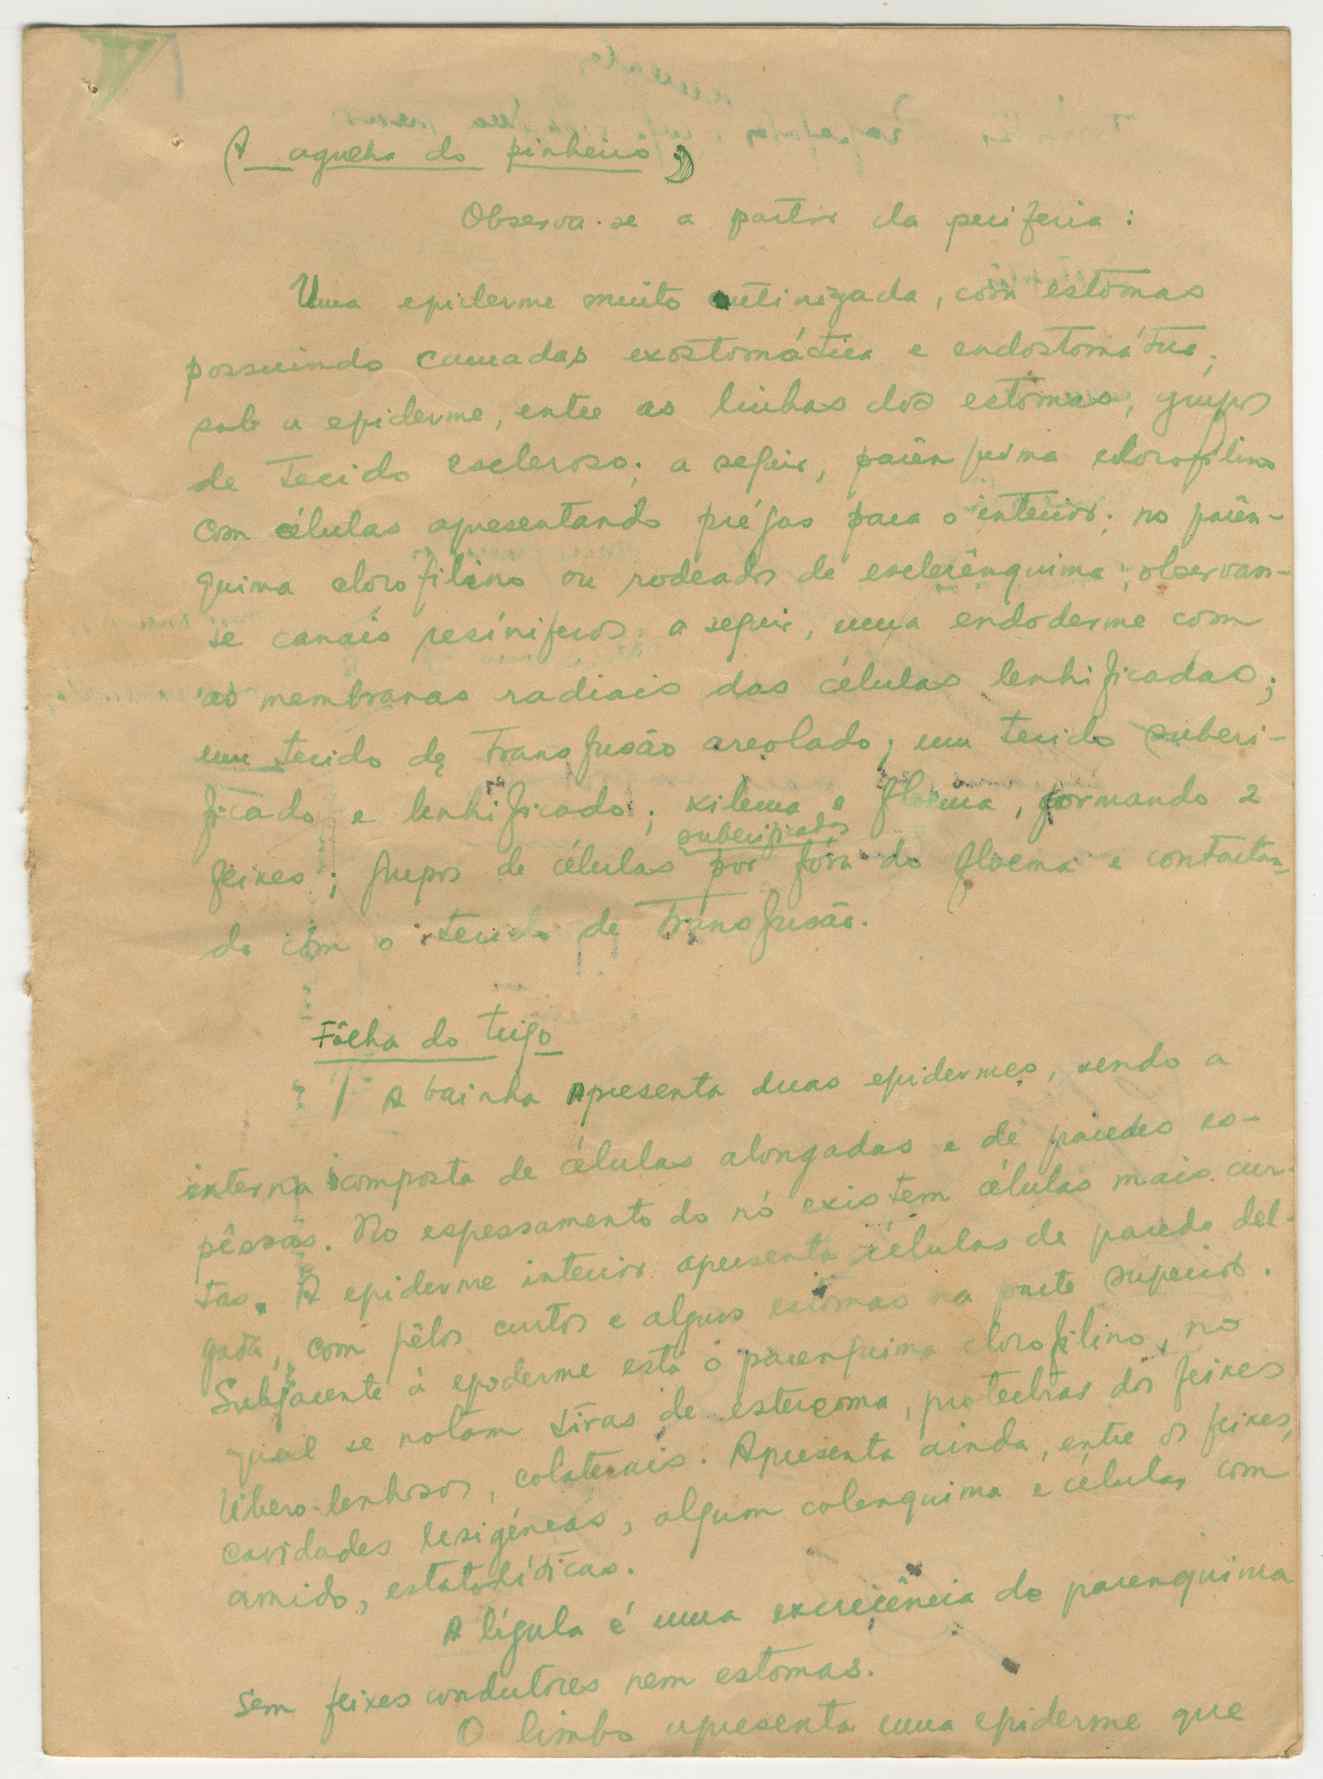 (A agulha do pinheiro)
Observa-se a partir da periferia:
Uma epiderme muito cutinizada, com estomas
possuindo camadas exostomática e endostomática;
sob a epiderme, entre as linhas dos estomas, grupos
de tecido escleroso; a seguir, parênquima clorofilino
com células apresentando prégas para o interior; no parên-
quima clorofilino ou rodeados de esclerênquima, observam-
se canais resiníferos; a seguir, uma endoderme com
as membranas radiais das células lenhificadas;
um tecido de transfusão areolado; um tecido suberi-
ficado e lenhificado; xilema e floema, formando 2
feixes; grupos de células suberificadas por fóra do floema e contactan-
do com o tecido de transfusão.
Fôlha do trigo
A bainha apresenta duas epidermes, sendo a
interna composta de células alongadas e de paredes es-
pêssas. No espessamento do nó existem células mais cur-
tas. A epiderme interior apresenta células de parede del-
gada, com pêlos curtos e alguns estomas na parte superior.
Subjacente à epoderme está o parenquima clorofilino, no
qual se notam tiras de estereoma, protectoras dos feixes
líbero-lenhosos, colaterais. Apresenta ainda, entre os feixes,
cavidades lesigéneas, algum colenquima e células com
amido, estatolíticas.
A lígula é uma excrecência do parenquima
sem feixes condutores nem estomas.
O limbo apresenta uma epiderme que